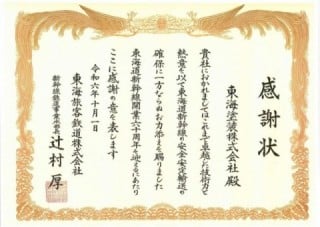 感謝状
東海塗装株式会社殿
貴社におかれましてはこれまで卓越した技術力と
熱意を以て東海道新幹線の安全安定輸送の
確保に一方ならぬお力添えを賜りました
東海道新幹線開業六十周年を迎えるにあたり
ここに感謝の意を表します
令和六年十月一日
東海旅客鉄道株式会社
新幹線鉄道事業本部長 辻村厚